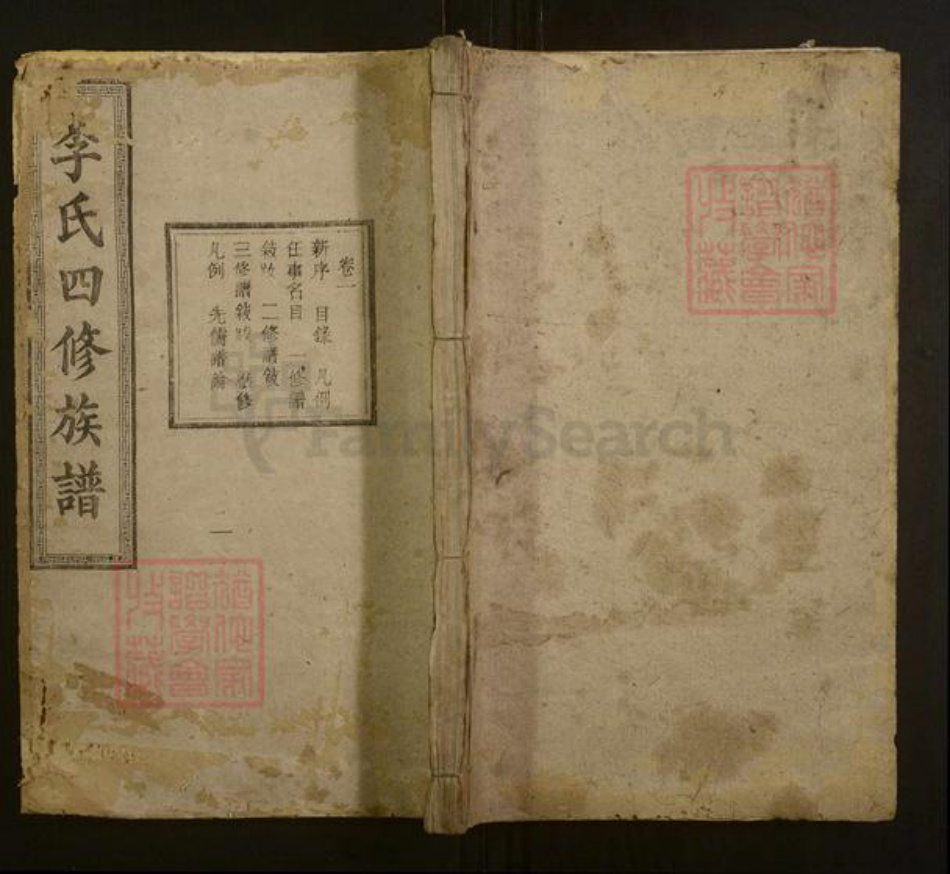 李氏四修族譜
卷一
新序 目錄 凡例
任事名目 一修譜
敍跋 二修譜敍
三修譜敍跋 修
凡例 先儒譜論
一
FamilySearch
譜學會
收藏
譜學會
收藏